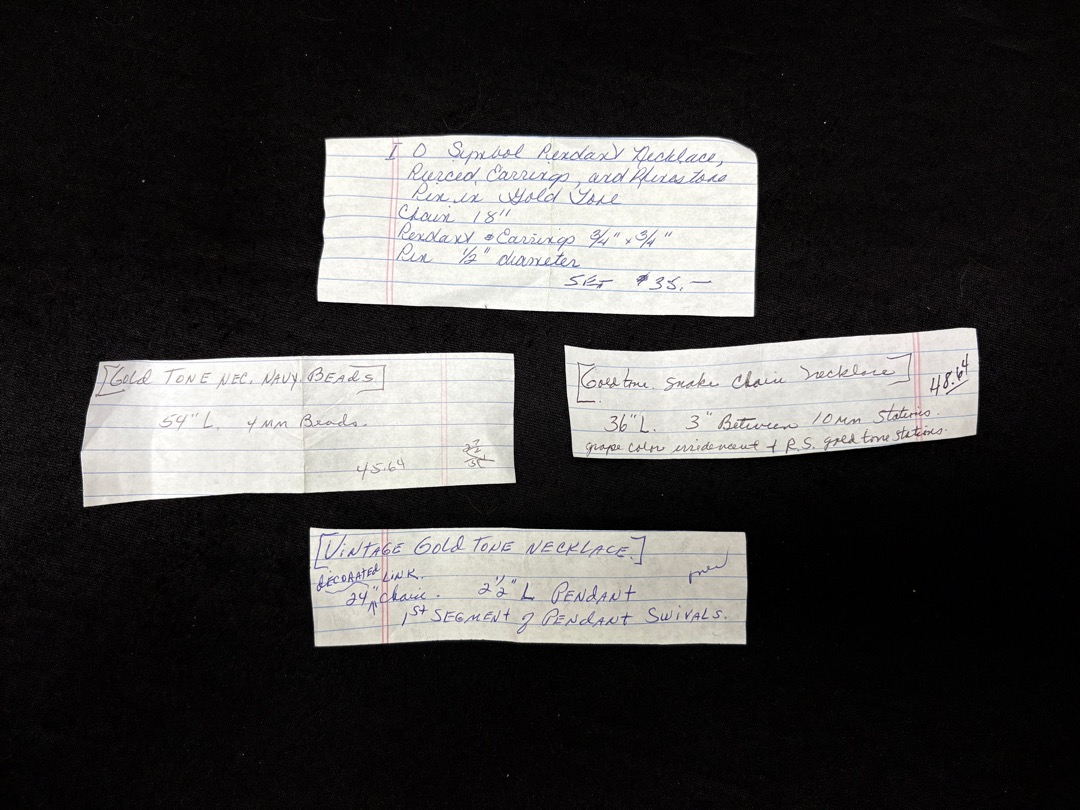 I O Symbol Pendant Necklace,
Pierced Earrings, and Rhinestone
Pin in Gold Tone
Chain 18"
Pendant & Earrings 3/4" x 3/4"
Pin 1/2" diameter
SET $35.—
[Gold TONE NEC. NAVY BEADS]
54" L. 4 MM Beads.
45.64
[Goldtone Snake Chain Necklace]
48.64
36" L. 3" Between 10 MM Stations.
grape color irridencent + R.S. gold tone stations.
[VINTAGE GOLD TONE NECKLACE.]
DECORATED LINK.
24" Chain. 2 1/2" L PENDANT
1st SEGMENT of PENDANT SWIVALS.